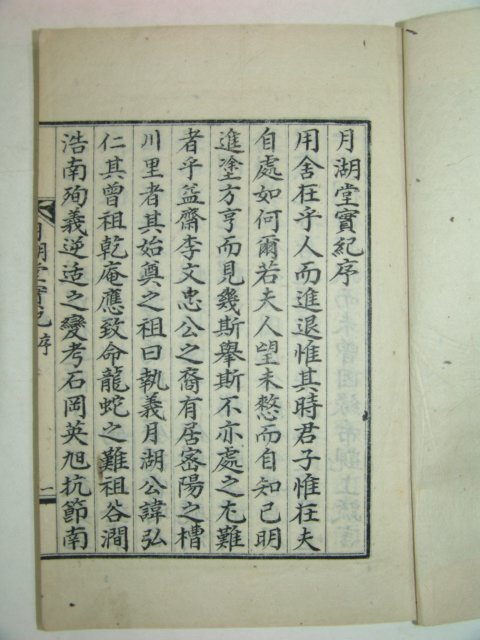 月湖堂實紀序
用舍在乎人而進退惟其時君子惟在夫
自處如何爾若夫人望未愁而自知已明
進塗方亨而見幾斯舉斯不亦處之尤難
者乎益齋李文忠公之裔有居密陽之槽
川里者其始奠之祖曰執義月湖公諱弘
仁其曾祖乾庵應致命龍蛇之難祖谷澗
浩南殉義逆适之變考石岡英旭抗節南
月湖堂實紀 序 一